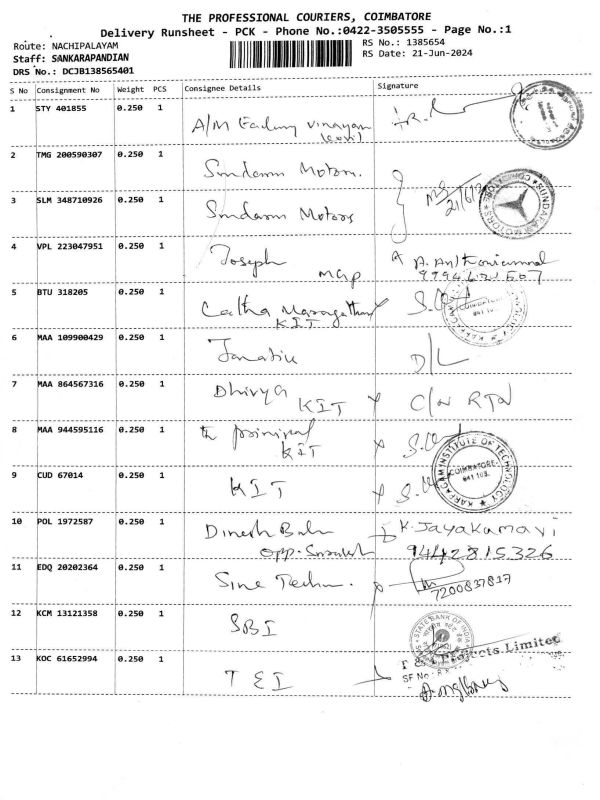 THE PROFESSIONAL COURIERS, COIMBATORE
Delivery Runsheet - PCK - Phone No.:0422-3505555 - Page No.:1
Route: NACHIPALAYAM
RS No.: 1385654
Staff: SANKARAPANDIAN
RS Date: 21-Jun-2024
DRS No.: DCJB138565401
S No Consignment No Weight PCS Consignee Details Signature
1 STY 401855 0.250 1
A/M
2 TMG 200590307 0.250 1 Sundaram Motors.
3 SLM 348710926 0.250 1 Sundaram Motors
21/6/
SUNDARAM MOTORS COIMBATORE
4 VPL 223047951 0.250 1 Joseph
9994621507
5 BTU 318205 0.250 1
KIT
COIMBATORE
641 105.
6 MAA 109900429 0.250 1 D/L
7 MAA 864567316 0.250 1 Dhivya KIT C/N RTN
8 MAA 944595116 0.250 1 principal
KIT
9 CUD 67014 0.250 1 KIT
KARPAGAM INSTITUTE OF TECHNOLOGY
COIMBATORE-
641 105.
10 POL 1972587 0.250 1 Dinesh Babu K. Jayakamavi
opp. 9442815326
11 EDQ 20202364 0.250 1 Sine Techn.
7200837817
12 KCM 13121358 0.250 1 SBI
STATE BANK OF INDIA
13 KOC 61652994 0.250 1 T E I
Projects Limited
SF No: